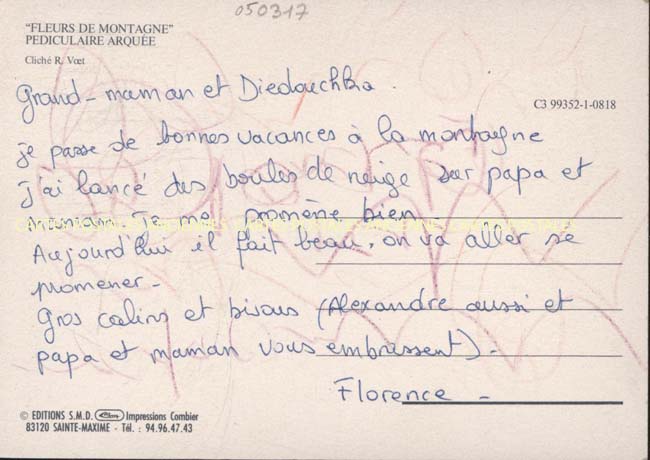 050317
"FLEURS DE MONTAGNE"
PEDICULAIRE ARQUÉE
Cliché R. Vœt
Grand-maman et Diedouchka.
C3 99352-1-0818
je passe de bonnes vacances à la montagne
j'ai lancé des boules de neige sur papa et
maman. Je me promène bien -
Aujourd'hui il fait beau, on va aller se
promener -
Gros calins et bisous (Alexandre aussi et
papa et maman vous embrassent) -
Florence -
© EDITIONS S.M.D. Impressions Combier
83120 SAINTE-MAXIME - Tél. : 94.96.47.43